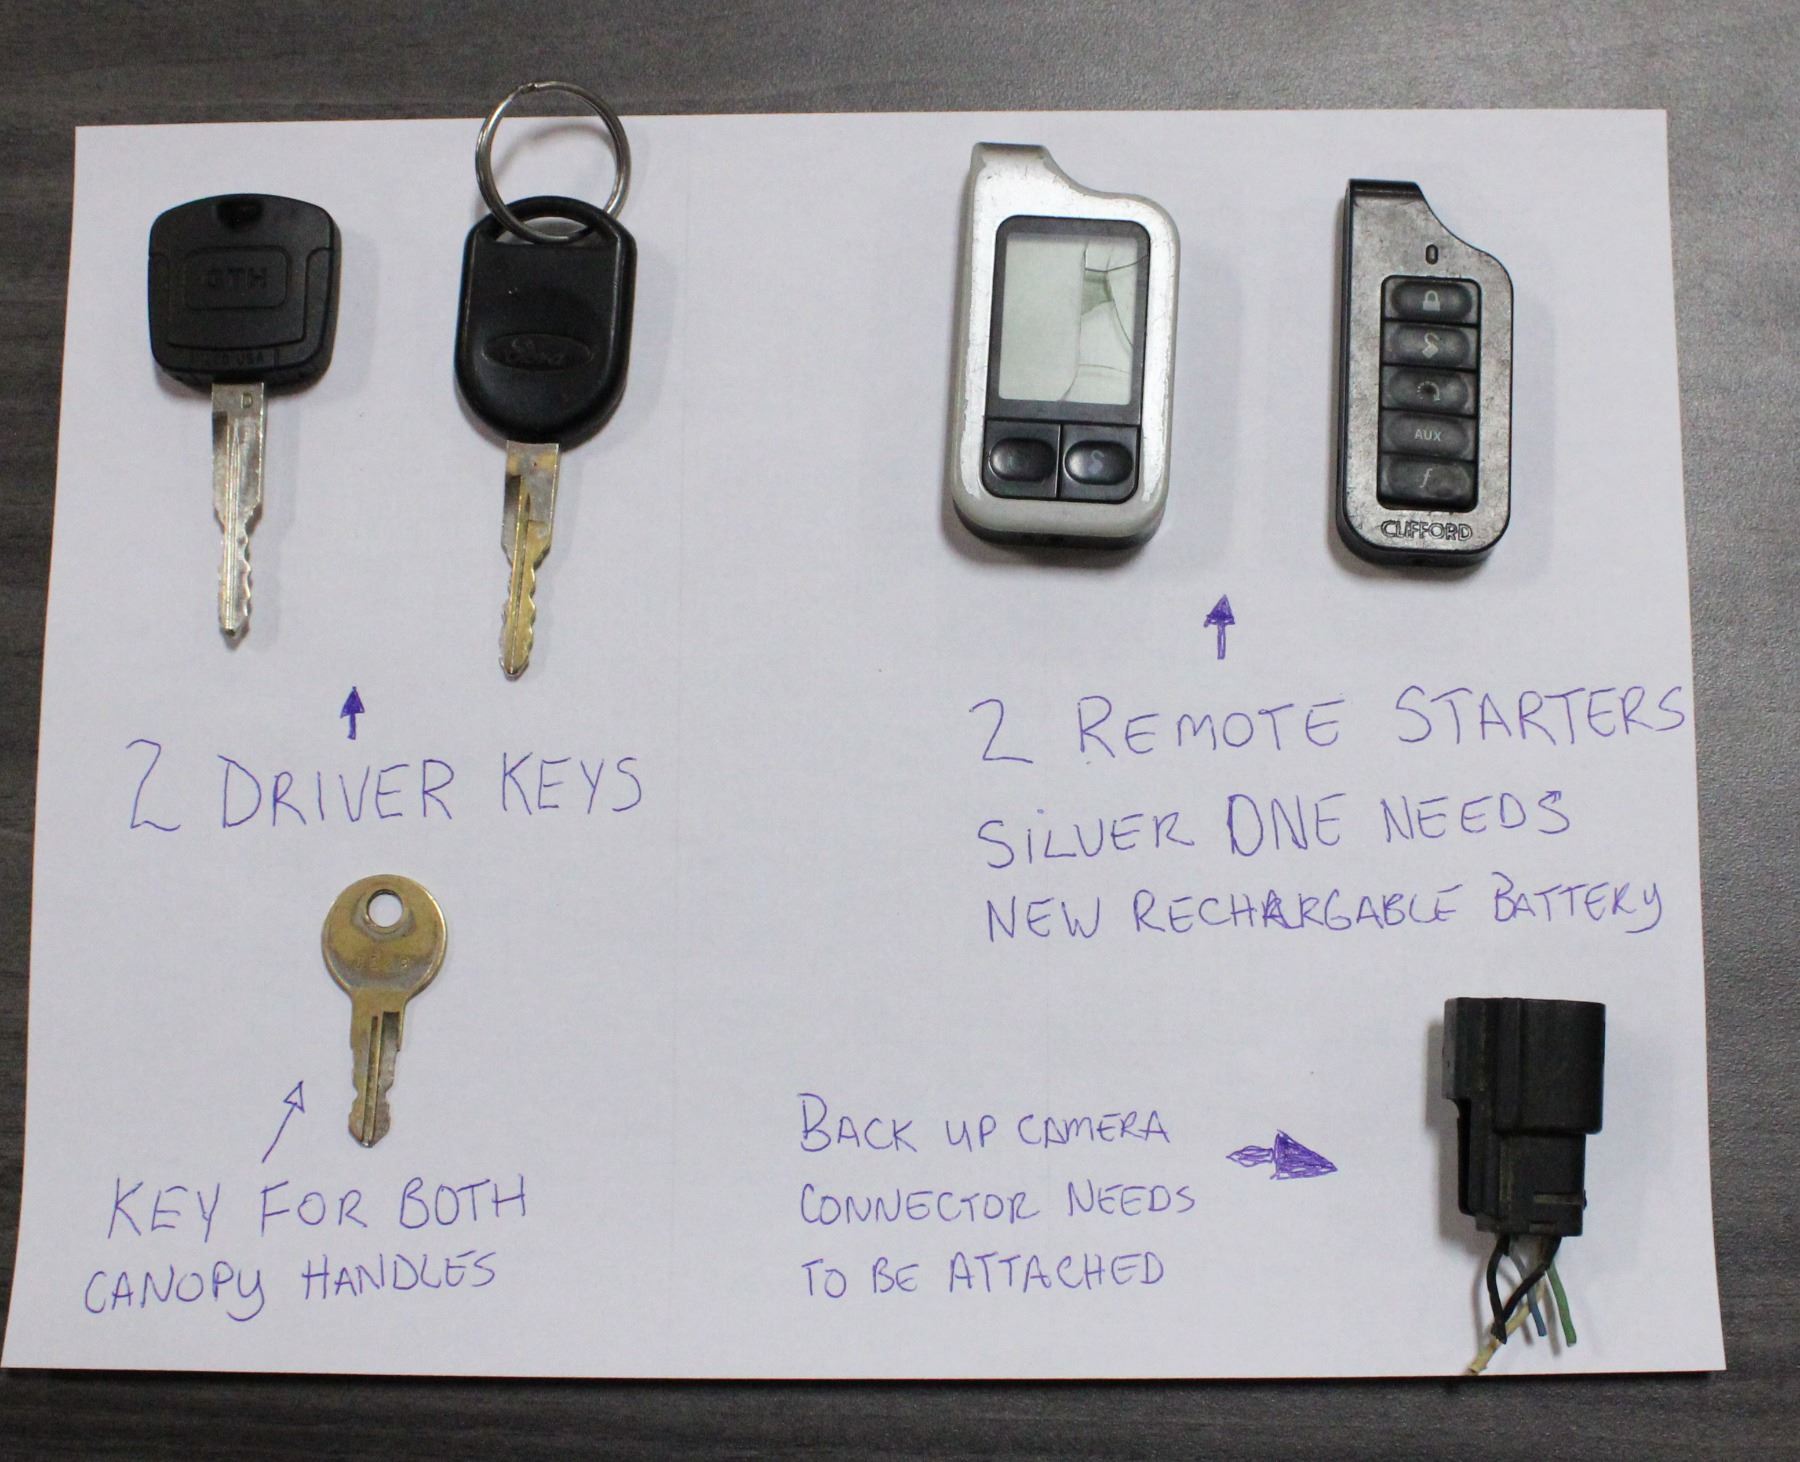 GTH
Ford
AUX
f
CLIFFORD
2 DRIVER KEYS
2 REMOTE STARTERS
SILVER ONE NEEDS
NEW RECHARGABLE BATTERY
KEY FOR BOTH
CANOPY HANDLES
BACK UP CAMERA
CONNECTOR NEEDS
TO BE ATTACHED